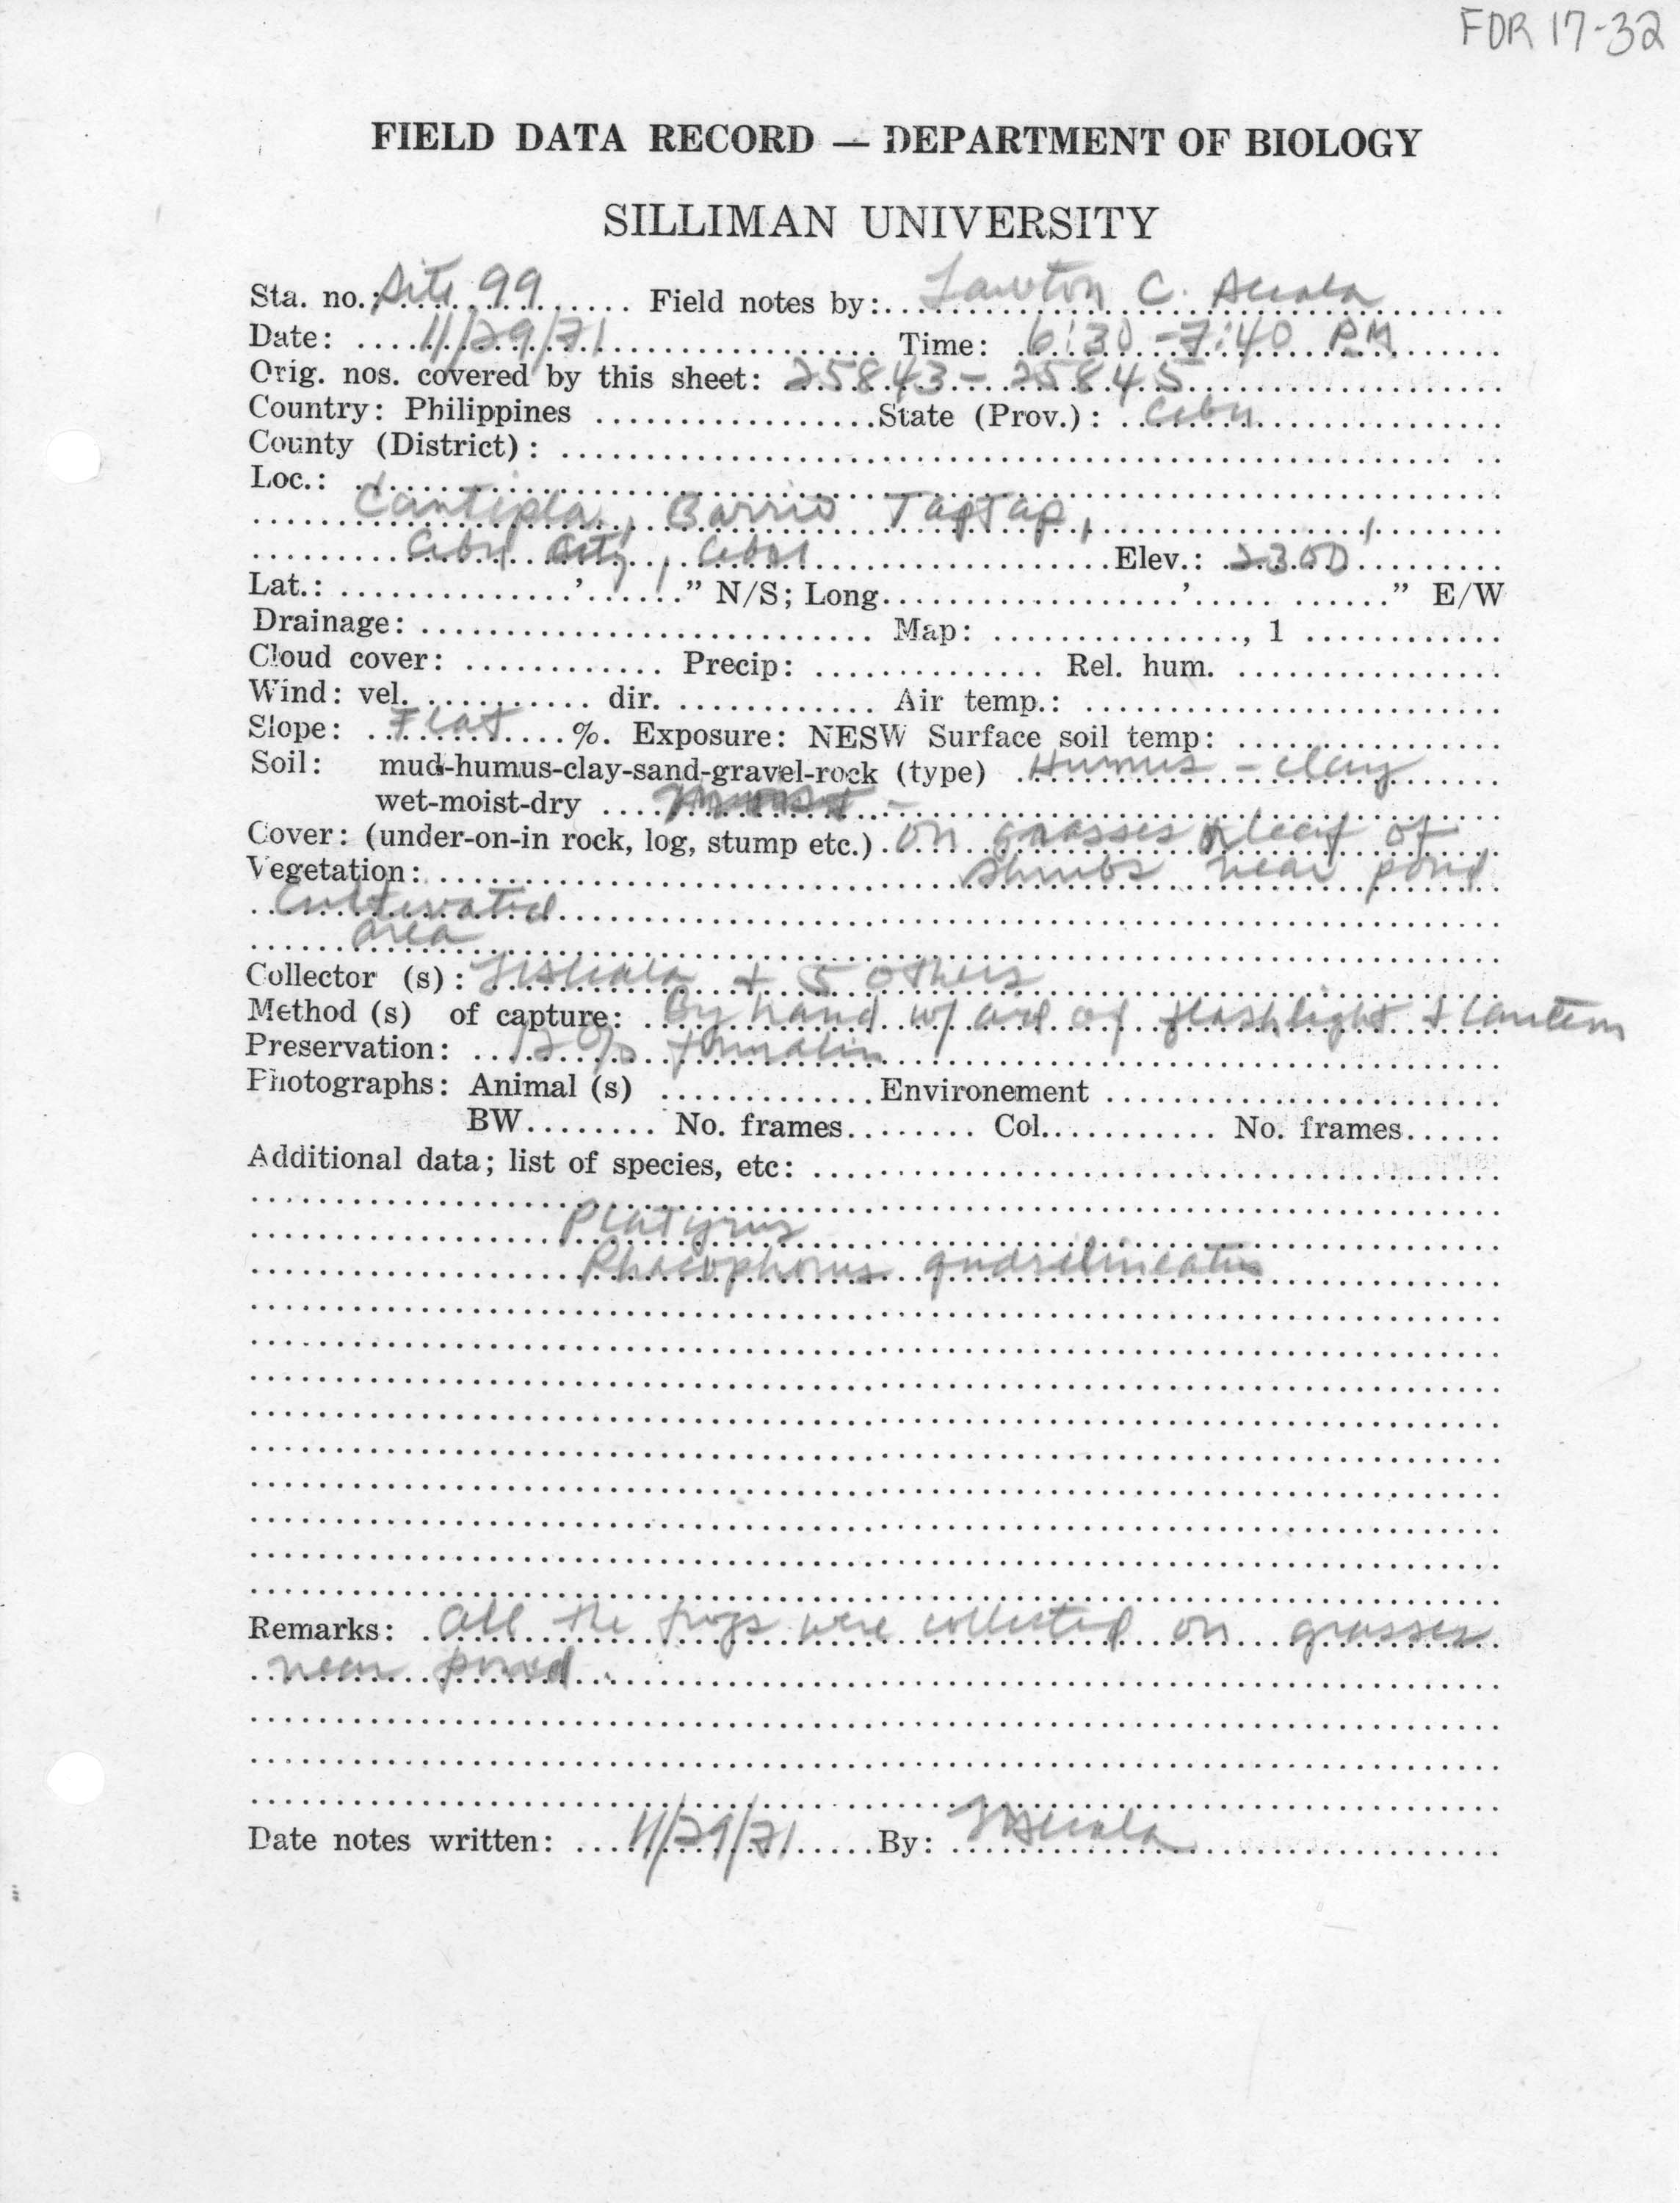 FDR 17-32
FIELD DATA RECORD — DEPARTMENT OF BIOLOGY
SILLIMAN UNIVERSITY
Sta. no.: Site 99 Field notes by: Lawton C. Alcala
Date: 11/29/71 Time: 6:30 - 7:40 PM
Orig. nos. covered by this sheet: 25843 - 25845
Country: Philippines State (Prov.): Cebu
County (District):
Loc.:
Cantipla, Barrio Taptap,
Cebu City, Cebu Elev.: 2300'
Lat.: ' " N/S; Long. ' " E/W
Drainage: Map: , 1
Cloud cover: Precip: Rel. hum.
Wind: vel. dir. Air temp.:
Slope: Flat %. Exposure: NESW Surface soil temp:
Soil: mud-humus-clay-sand-gravel-rock (type) Humus - clay
wet-moist-dry
Cover: (under-on-in rock, log, stump etc.) on grasses & leaf of
Vegetation: shrubs near pond
Cultivated
area
Collector (s): Alcala + 5 others
Method (s) of capture: By hand w/ aid of flashlight & lantern
Preservation: 12% formalin
Photographs: Animal (s) Environement
BW No. frames Col. No. frames
Additional data; list of species, etc:
Rhacophorus
Remarks: All the frogs were collected on grasses
near pond.
Date notes written: 11/29/71 By: Alcala